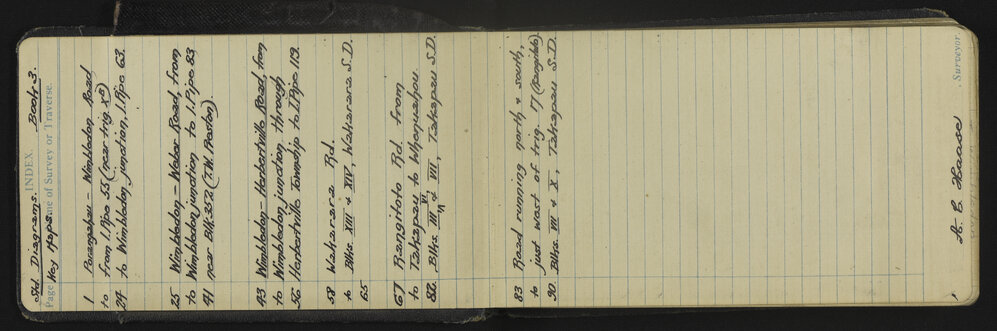 Std Diagrams. INDEX. Book 3.
Page Name of Survey or Traverse.
Key Maps.
1 Porangahau – Wimbledon Road
to from I.Pipe 55 (near trig X²)
24 to Wimbledon junction, I.Pipe 63.
25 Wimbledon – Weber Road, from
to Wimbledon junction to I.Pipe 83
41 near Blk 352 (T.W. Preston).
43 Wimbledon – Herbertville Road, from
to Wimbledon junction through
56 Herbertville Township to I.Pipe 119.
58 Wakarara Rd.
to Blks. XIII & XIV, Wakarara S.D.
65
67 Rangitoto Rd. from
to Takapau to Whenuahou.
82. Blks. III, VI & VII, Takapau S.D.
83 Road running north & south,
to just west of trig 17 (Rangitoto)
90. Blks. VII & X, Takapau S.D.
A. E. Haase
Surveyor.